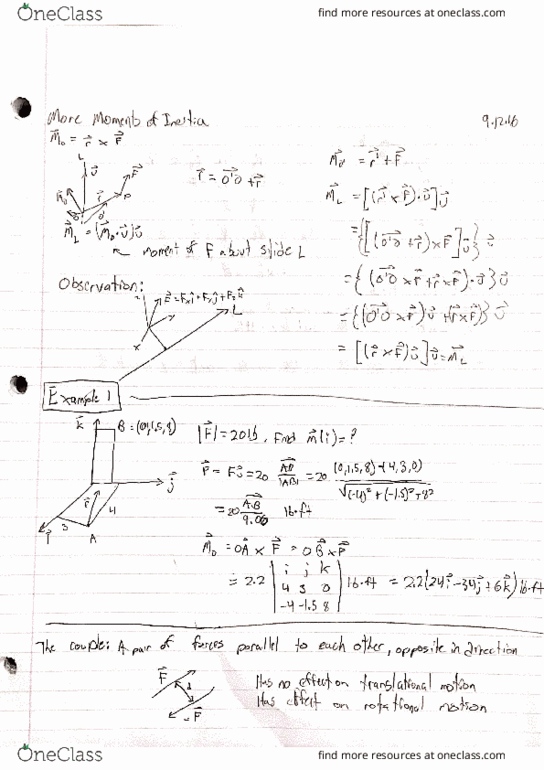 OneClass
find more resources at oneclass.com
More Moments of Inertia
9.12.16
M⃗o = r⃗ × F⃗
r⃗' = O'O⃗ + r⃗
M⃗L = (M⃗o·u⃗)u⃗
moment of F about slide L
M⃗o' = r⃗' + F⃗
M⃗L = [(r⃗' × F⃗)·u⃗]u⃗
= {[(O'O⃗ + r⃗) × F⃗]u⃗} u⃗
= {(O'O⃗ × F⃗ + r⃗ × F⃗)·u⃗} u⃗
= {(O'O⃗ × F⃗)u⃗ + (r⃗ × F⃗)} u⃗
= [(r⃗ × F⃗)u⃗]u⃗ = M⃗L
Observation:
F⃗ = Fxî + Fyĵ + Fzk̂
L
x
Example 1
k⃗
B = (0,1.5,8)
|F⃗| = 20lb, Find m⃗(i) = ?
j⃗
F⃗ = Fu⃗ = 20 AB⃗/|AB| = 20 (0,1.5,8) - (4,3,0) / √(-4)² + (-1.5)² + 8²
= 20 A⃗B / 9.06 lb·ft
r⃗
3
4
A
M⃗o = OA⃗ × F⃗ = OB⃗ × F⃗
= 2.2 | i j k | lb·ft = 2.2(24i⃗ - 34j⃗ + 6k⃗) lb·ft
4 3 0
-4 -1.5 8
The couple: A pair of forces parallel to each other, opposite in direction
F⃗
d
-F⃗
Has no effect on translational motion
Has effect on rotational motion
OneClass
find more resources at oneclass.com